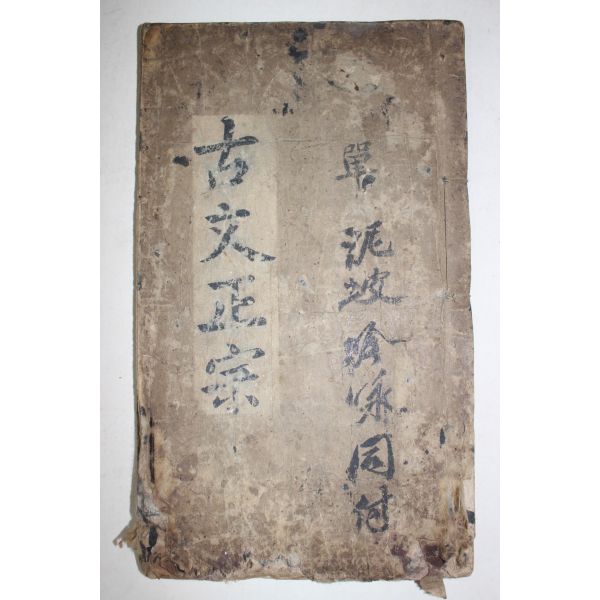 單 泥坡吟咏同付
古文正宗